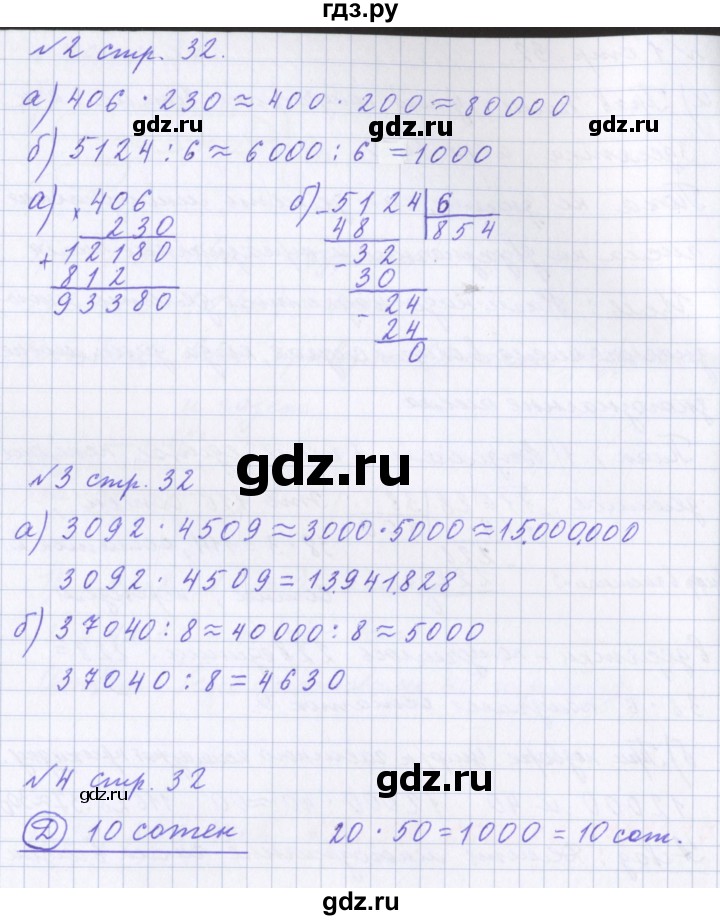 гдз.ру
№2 стр. 32.
а) 406 · 230 ≈ 400 · 200 ≈ 80000
gdz.ru gdz.ru
б) 5124 : 6 ≈ 6000 : 6 = 1000
а) × 406 б) - 5124 | 6
230 48 854
+ 12180 - 32
812 30
93380 - 24
24
0
gdz.ru
№3 стр. 32
а) 3092 · 4509 ≈ 3000 · 5000 ≈ 15.000.000
3092 · 4509 = 13.941.828
gdz.ru gdz.ru
б) 37040 : 8 ≈ 40000 : 8 ≈ 5000
37040 : 8 = 4630
№4 стр. 32
gdz.ru gdz.ru
Д) 10 сотен 20 · 50 = 1000 = 10 сот.
gdz.ru